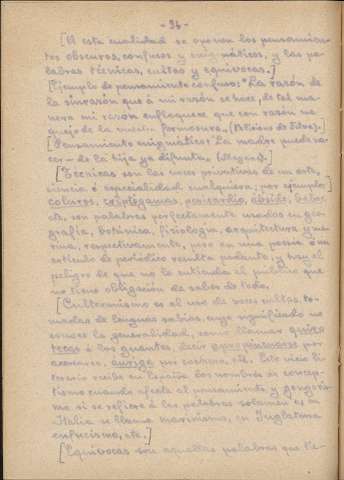 - 36 -
[A esta cualidad se oponen los pensamien-
tos obscuros, confusos y enigmáticos, y las pa-
labras técnicas, cultas y equívocas.]
[Ejemplo de pensamiento confuso: "La razón de
la sinrazón que á mi razón se hace, de tal ma-
nera mi razón enflaquece que con razón me
quejo de la vuestra fermosura. (Feliciano de Silva).]
[Pensamiento enigmático: La madre puede na-
cer - de la hija ya difunta. (Negro).]
[Técnicas son las voces privativas de un arte,
ciencia ó especialidad cualquiera; por ejemplo
criptógamas, pericardio, ábside,
etc. son palabras perfectamente usadas en geo-
grafía, botánica, fisiología, arquitectura y ma-
rina, respectivamente, pero en una poesía ó un
artículo de periódico resulta pedante, y hay el
peligro de que no lo entienda el público que
no tiene obligación de saber de todo.
[Culteranismo es el uso de voces cultas, to-
madas de lenguas sabias, cuyo significado no
conoce la generalidad, como llamar quiro-
tecas á los guantes, decir por
auriga por cochero, etc. Este vicio li-
terario recibe en España los nombres de concep-
tismo cuando afecta al pensamiento y gongoris-
mo si se refiere á las palabras solamente; en
Italia se llama marinismo, en Inglaterra
eufuismo, etc.]
[Equívocas son aquellas palabras que tie-